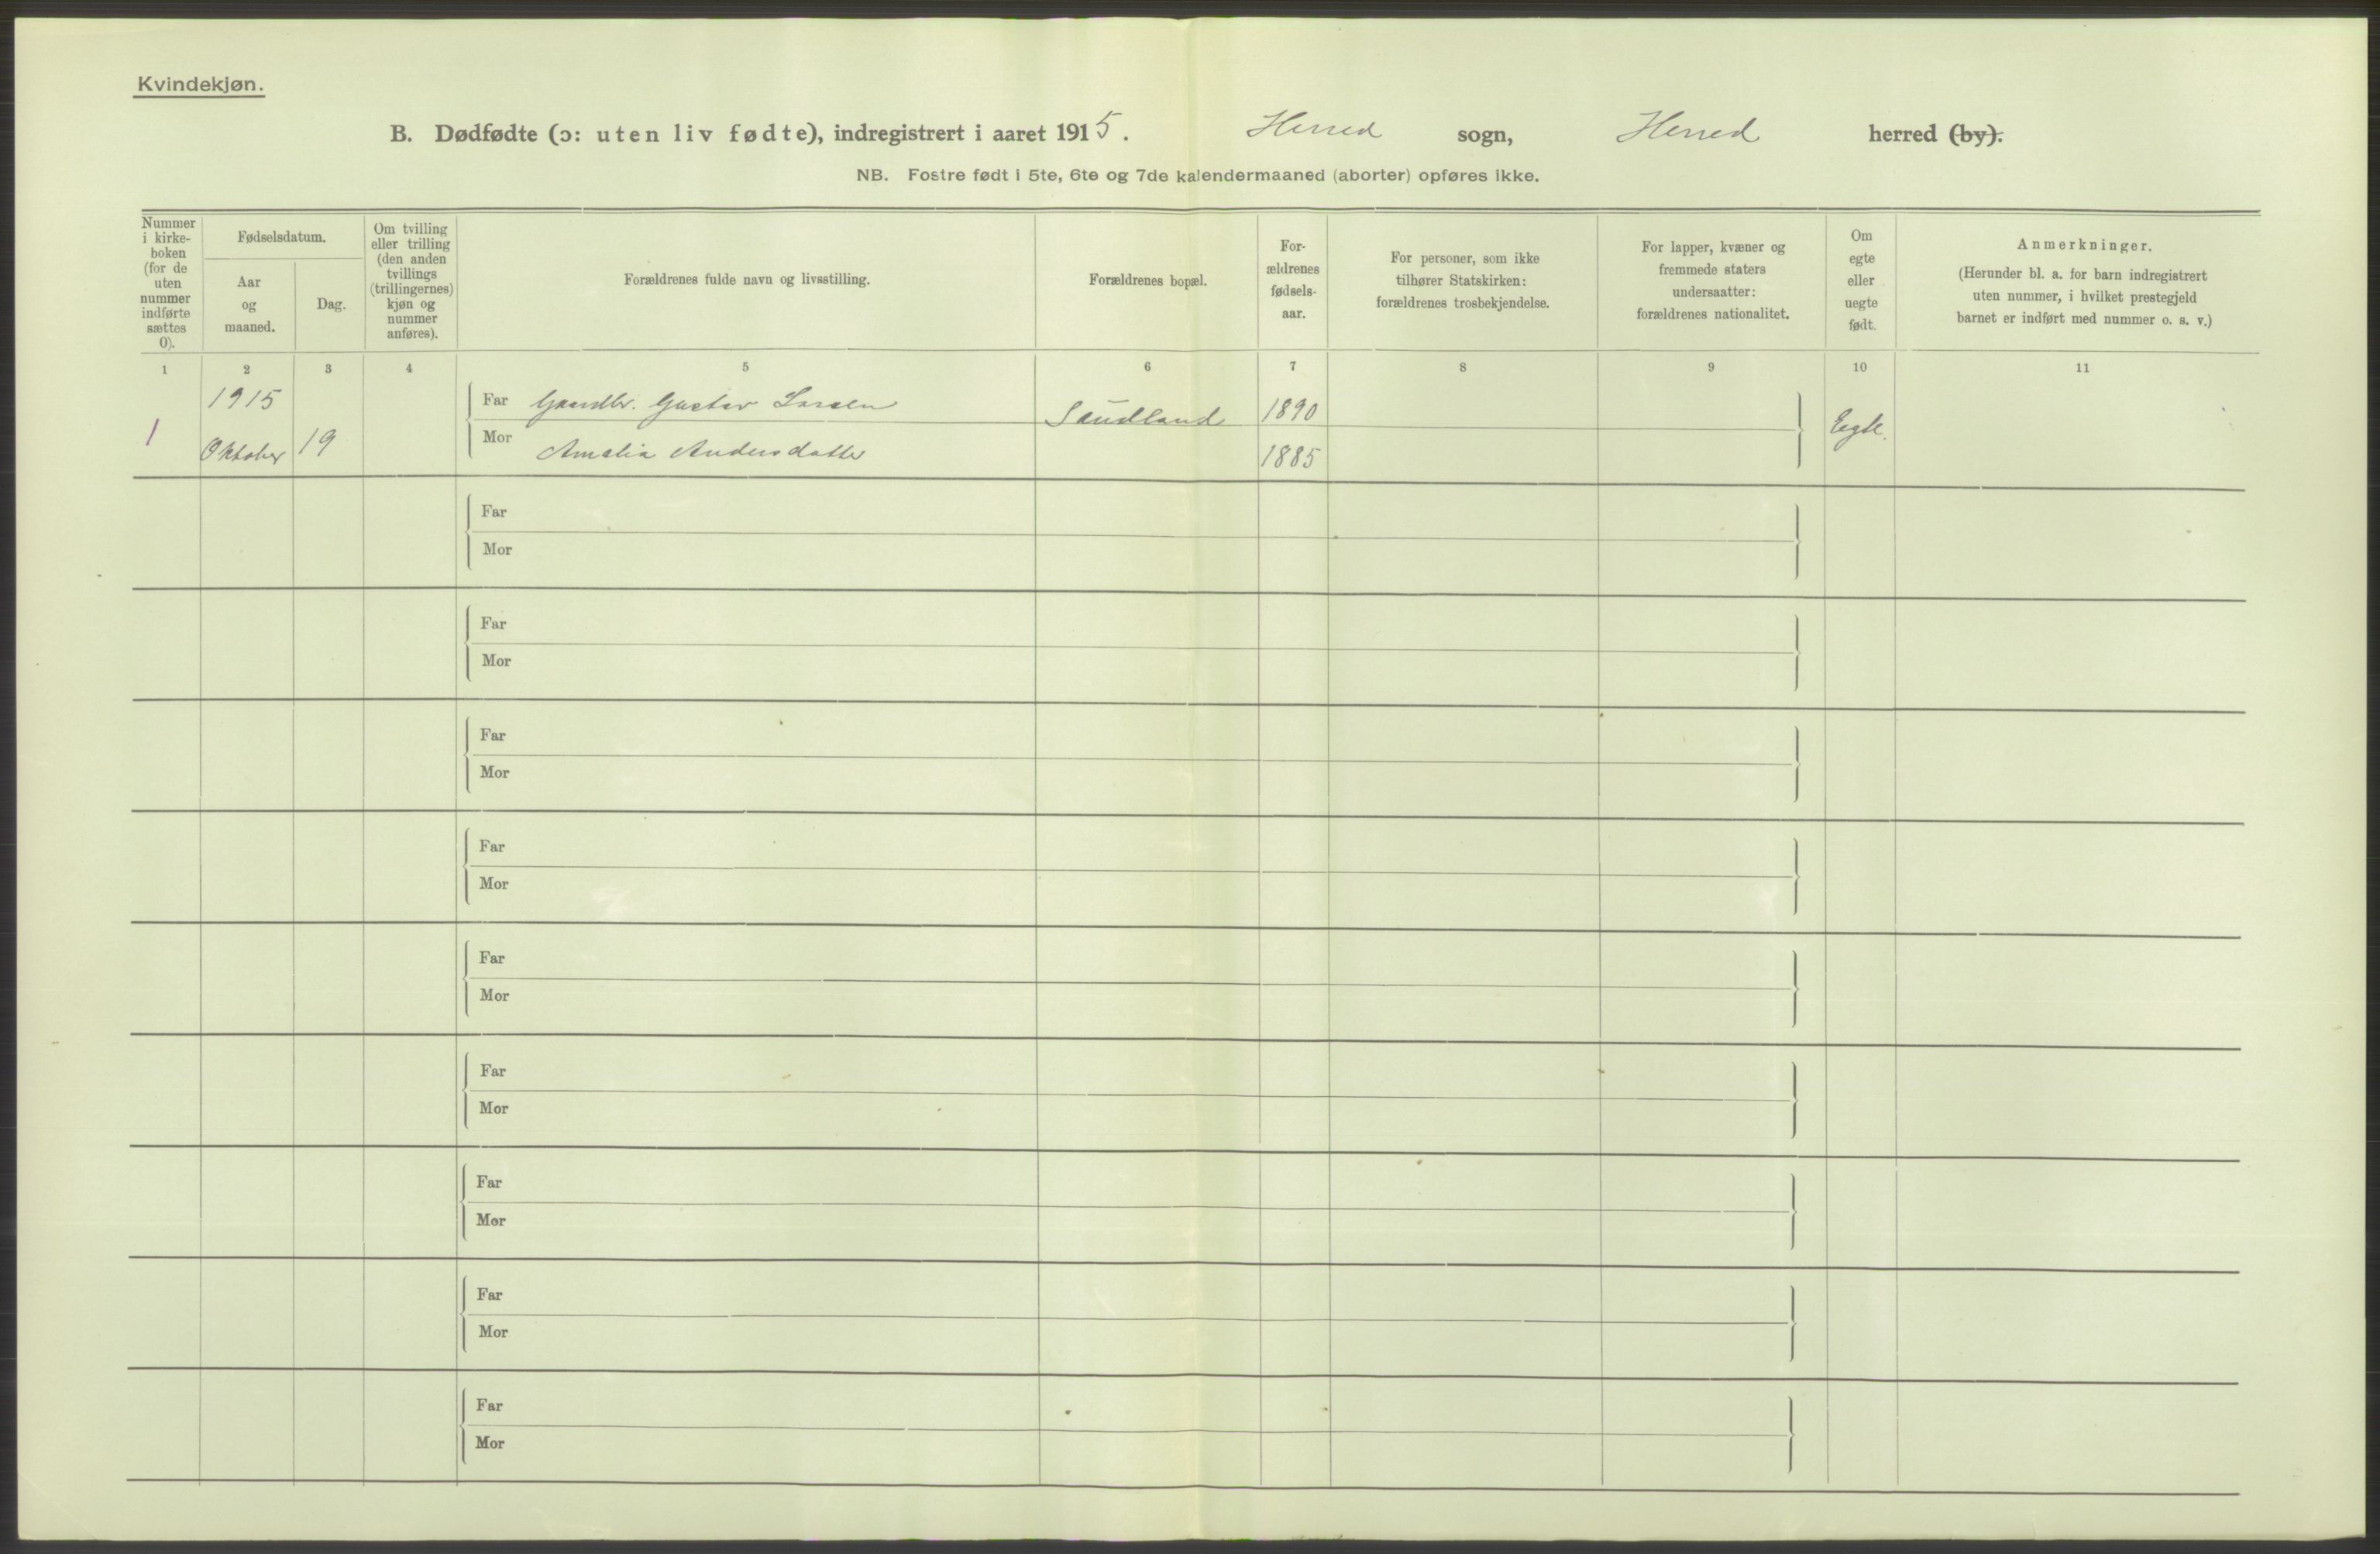 Kvindekjøn.
B. Dødfødte (ɔ: uten liv fødte), indregistrert i aaret 1915. Herred sogn, Herred herred (by).
NB. Fostre født i 5te, 6te og 7de kalendermaaned (aborter) opføres ikke.
Nummer
i kirke-
boken
(for de
uten
nummer
indførte
sættes
0).
Fødselsdatum.
Aar
og
maaned.
Dag.
Om tvilling
eller trilling
(den anden
tvillings
(trillingernes)
kjøn og
nummer
anføres).
Forældrenes fulde navn og livsstilling.
Forældrenes bopæl.
For-
ældrenes
fødsels-
aar.
For personer, som ikke
tilhører Statskirken:
forældrenes trosbekjendelse.
For lapper, kvæner og
fremmede staters
undersaatter:
forældrenes nationalitet.
Om
egte
eller
uegte
født.
Anmerkninger.
(Herunder bl. a. for barn indregistrert
uten nummer, i hvilket prestegjeld
barnet er indført med nummer o. s. v.)
1 2 3 4 5 6 7 8 9 10 11
1915
Far Gaardbr. Gustav Larsen Saudland 1890
1 Oktober 19 Egte.
Mor Amalia Andersdatter 1885
Far
Mor
Far
Mor
Far
Mor
Far
Mor
Far
Mor
Far
Mor
Far
Mor
Far
Mor
Far
Mor